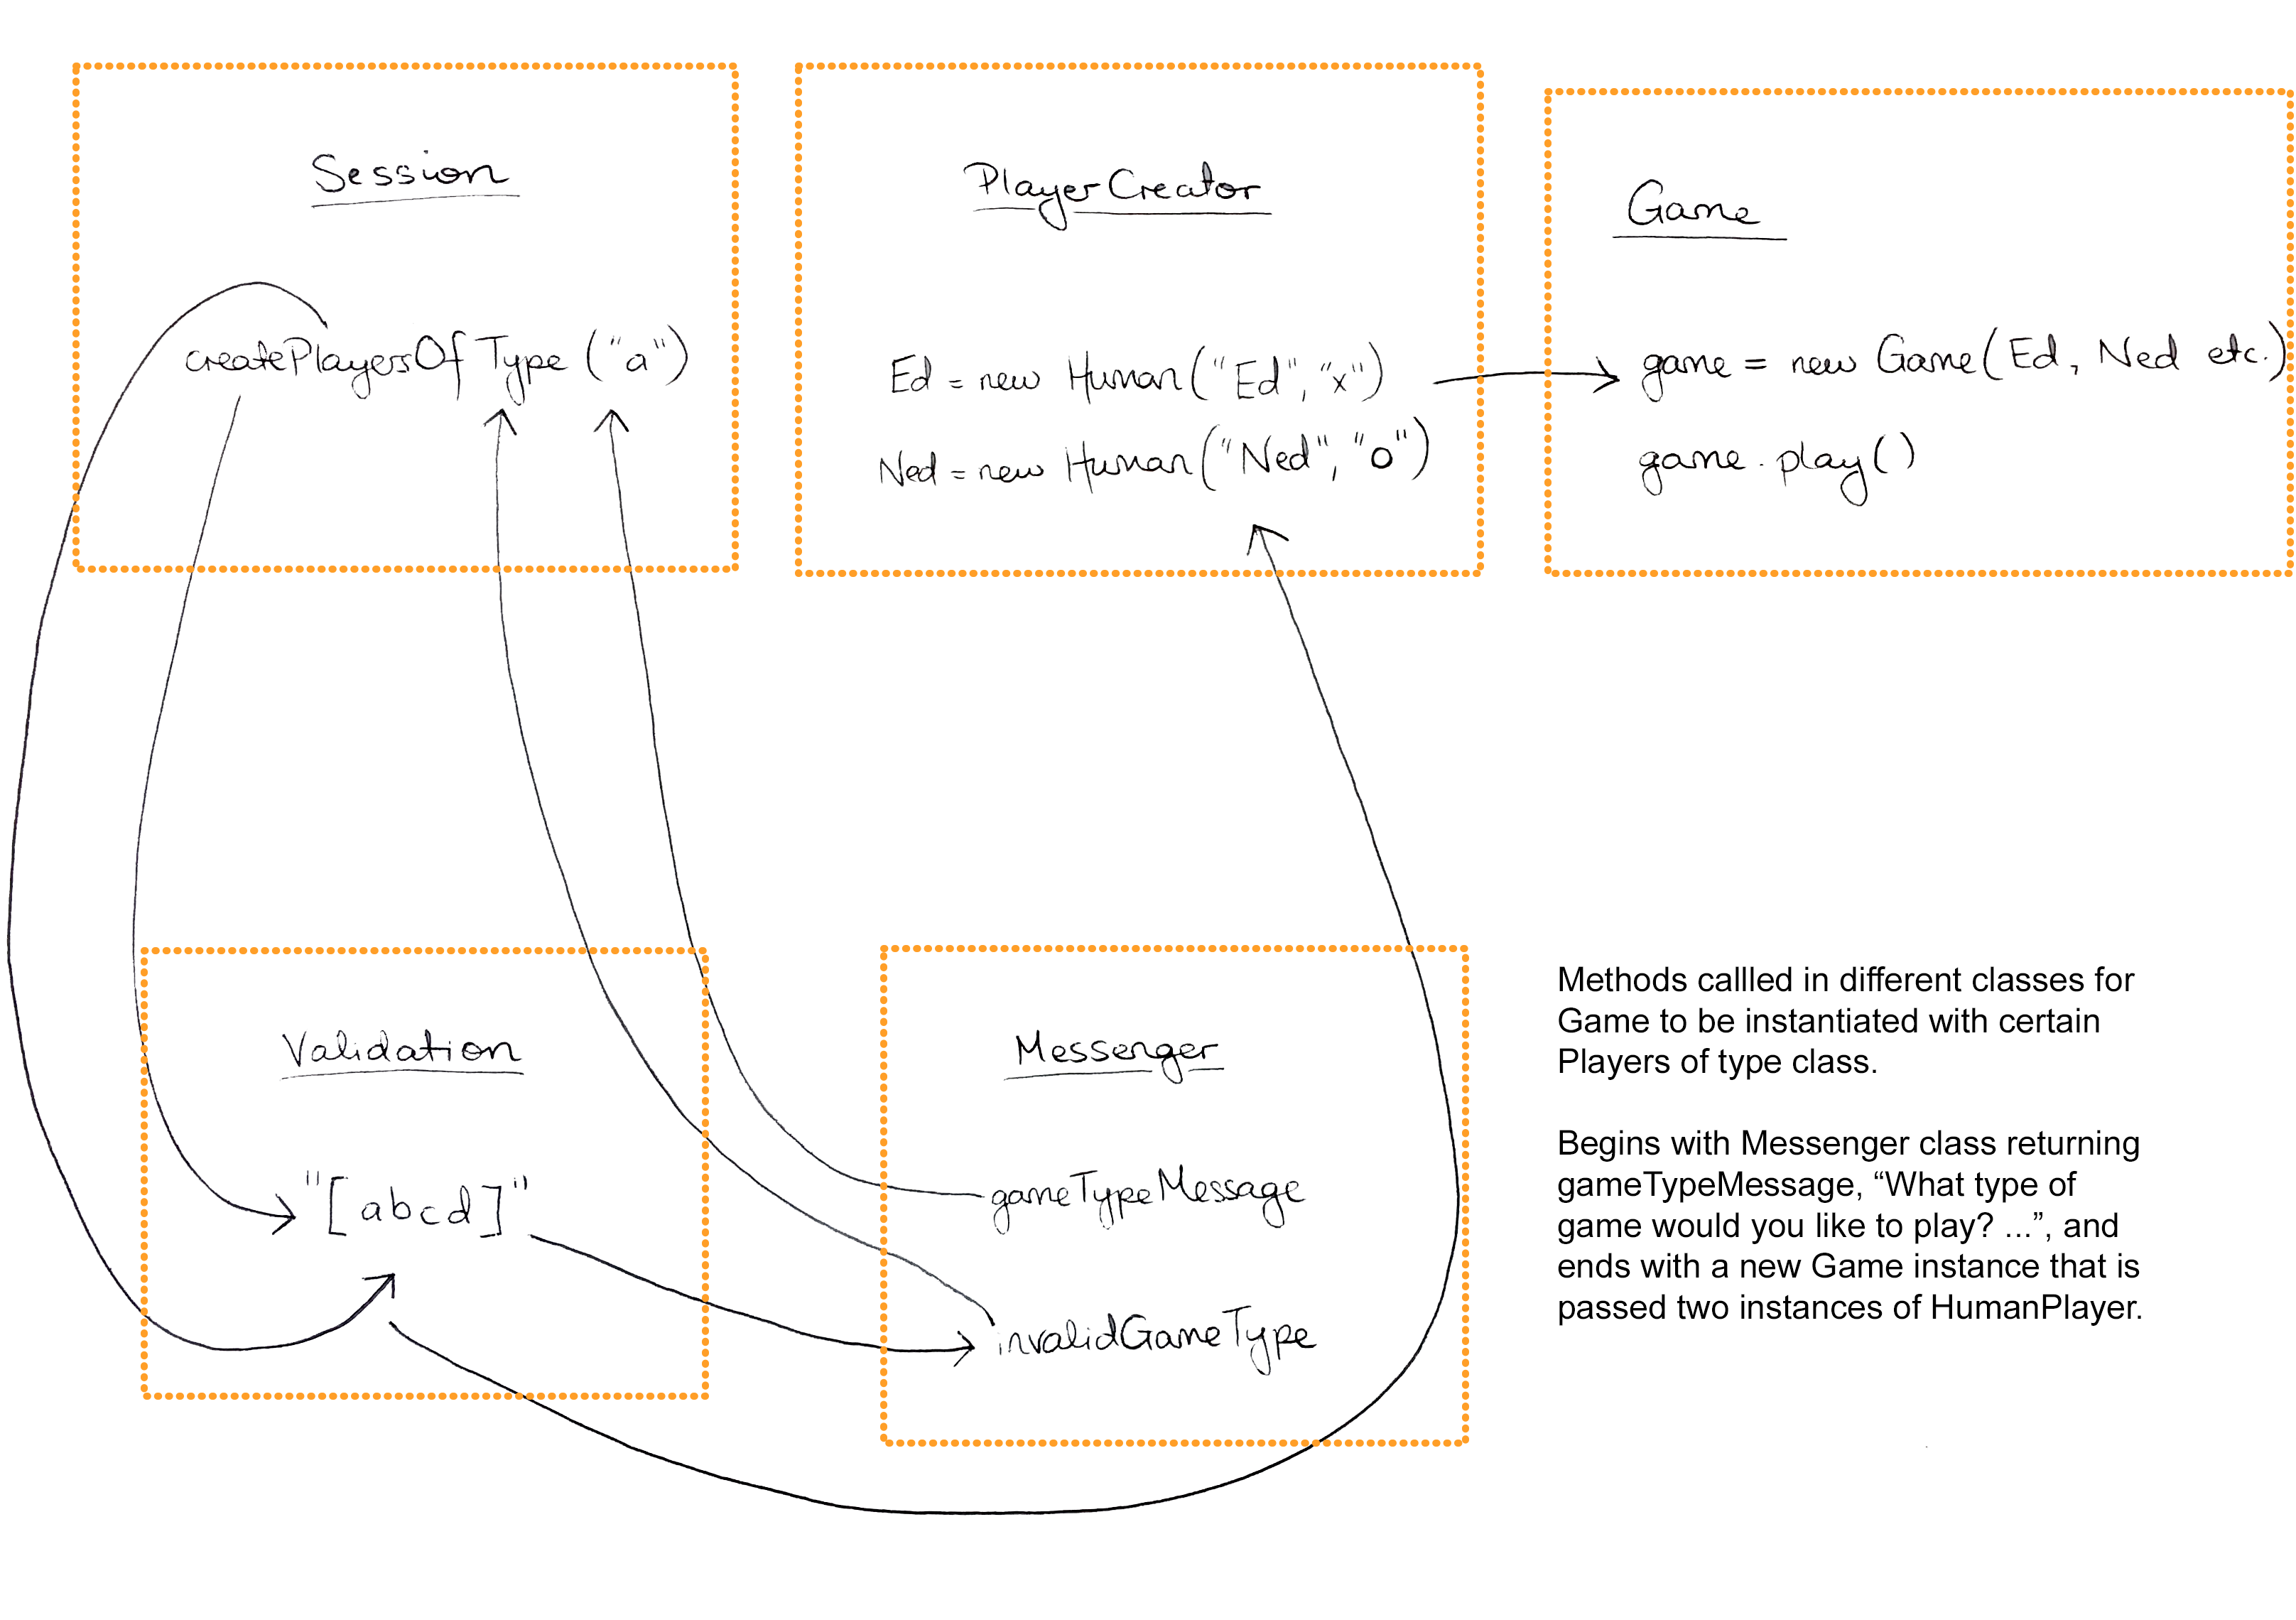 Session
createPlayersOfType ("a")
PlayerCreator
Ed = new Human("Ed", "x")
Ned = new Human("Ned", "o")
Game
game = new Game(Ed, Ned etc.)
game.play()
Validation
"[abcd]"
Messenger
gameTypeMessage
invalidGameType
Methods callled in different classes for
Game to be instantiated with certain
Players of type class.
Begins with Messenger class returning
gameTypeMessage, “What type of
game would you like to play? ...”, and
ends with a new Game instance that is
passed two instances of HumanPlayer.